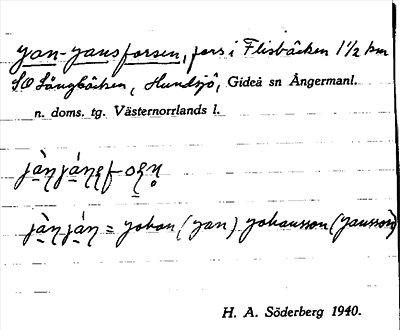 Jan-Jansforsen, fors i Flisbäcken 1½ km
SO Långbäcken, Hundsjö, Gideå sn Ångermanl.
n. doms. tg. Västernorrlands l.
jàn jáns
jàn ján = Johan (Jan) Johansson (Jansson)
H. A. Söderberg 1940.